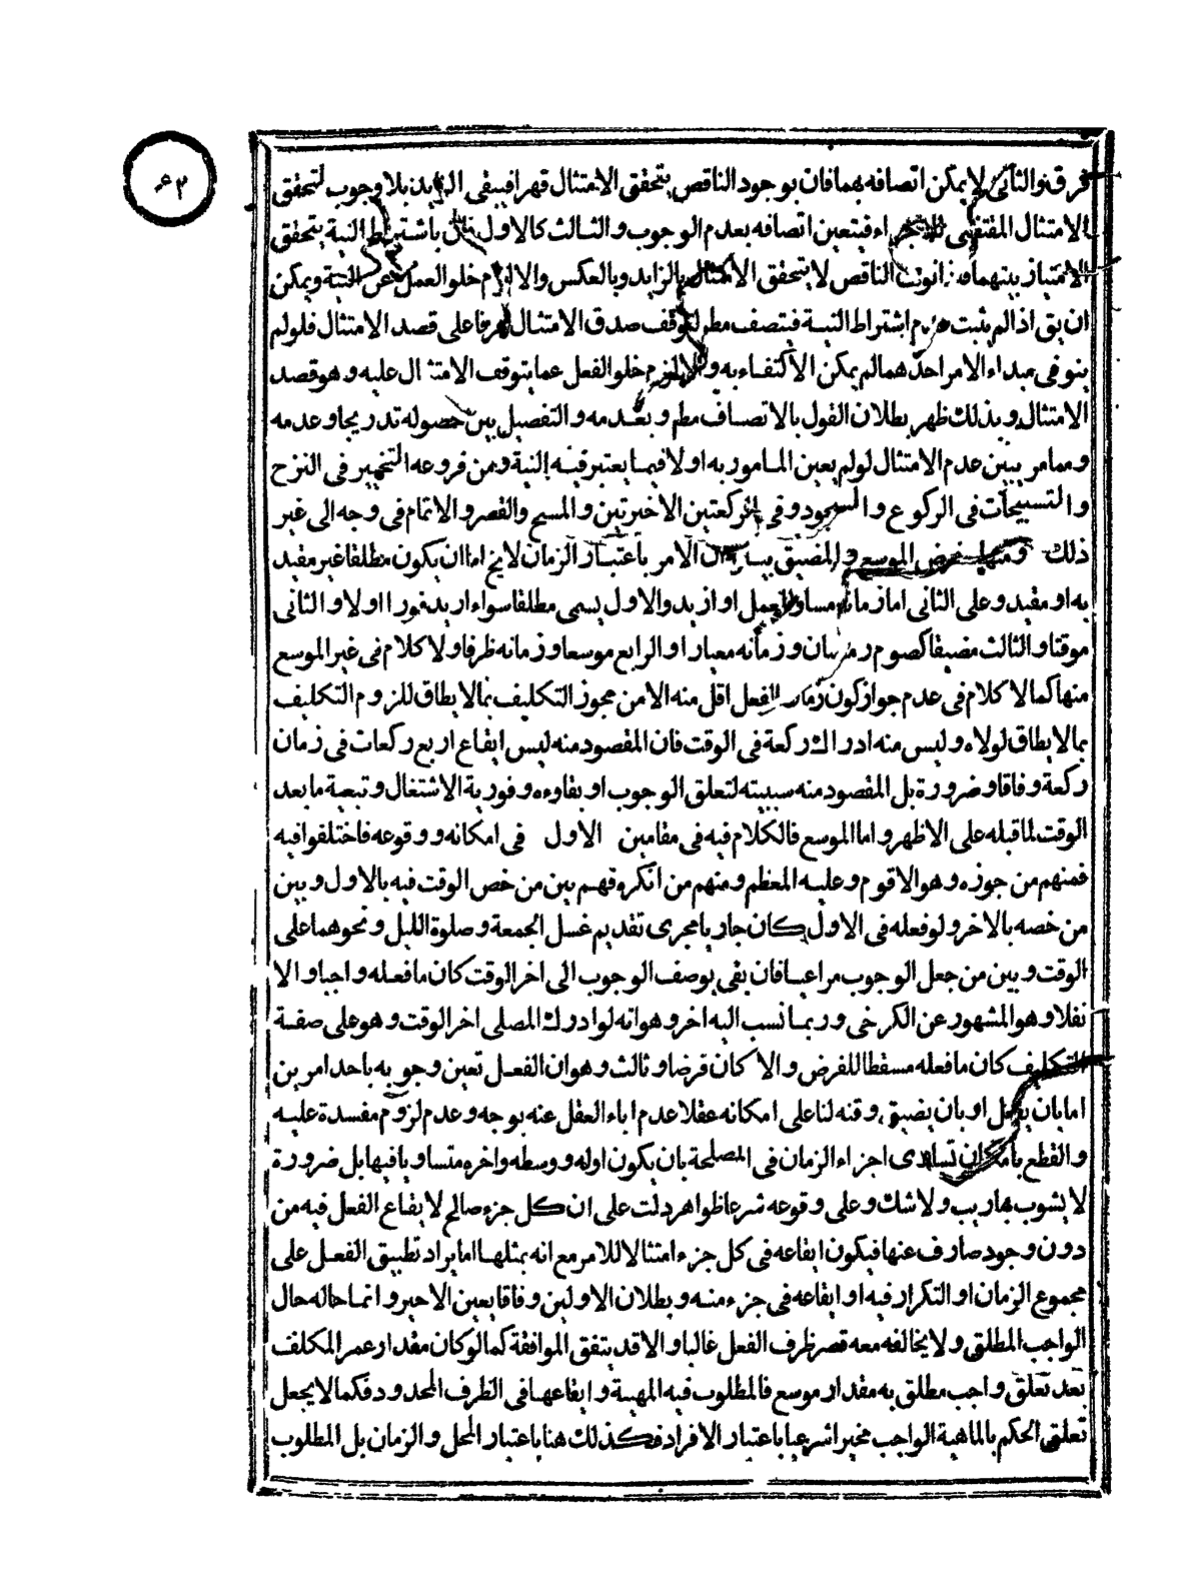 ٤٢
فرق والثانى لا يمكن اتصافه بهما فان بوجود الناقص يتحقق الامتثال قهرا فيبقى الزايد بلا وجوب لتحقق
الامتثال المقتضى للاجزاء فيتعين اتصافه بعدم الوجوب والثالث كالاول باشتراط النية يتحقق
الامتياز بينهما فاذا نوى الناقص لا يتحقق الامتثال بالزايد وبالعكس والا لزم خلو العمل عن النية ويمكن
ان يق اذا لم يثبت اشتراط النية فيتصف مطم لتوقف صدق الامتثال عرفا على قصد الامتثال فلو لم
ينو فى مبداء الامر احدهما لم يمكن الاكتفاء به والا لزم خلو الفعل عما يتوقف الامتثال عليه وهو قصد
الامتثال وبذلك ظهر بطلان القول بالاتصاف مطم وبعدمه والتفصيل بين حصوله تدريجا وعدمه
ومما مر يبين عدم الامتثال لو لم يعين المامور به اولا فيما يعتبر فيه النية ومن فروعه التخيير فى النزح
والتسبيحات فى الركوع والسجود وفى الركعتين الاخيرتين والمسح والقصر والاتمام فى وجه الى غير
ذلك ومنها فرض الموسع والمضيق الامر باعتبار الزمان لا يخ اما ان يكون مطلقا غير مقيد
به او مقيد وعلى الثانى اما زمانه مساو للعمل او ازيد والاول يسمى مطلقا سواء اريد فورا اولا والثانى
موقتا والثالث مضيقا كصوم رمضان وزمانه معيارا والرابع موسعا وزمانه ظرفا ولا كلام فى غير الموسع
منها كما لا كلام فى عدم جواز كون زمان الفعل اقل منه الا من مجوز التكليف بما لا يطاق للزوم التكليف
بما لا يطاق لولاه وليس منه ادراك ركعة فى الوقت فان المقصود منه ليس ايقاع اربع ركعات فى زمان
ركعة وفاقا وضرورة بل المقصود منه سببيته لتعلق الوجوب او بقاءه وفورية الاشتغال وتبعية ما بعد
الوقت لما قبله على الاظهر واما الموسع فالكلام فيه فى مقامين الاول فى امكانه ووقوعه فاختلفوا فيه
فمنهم من جوزه وهو الاقوم وعليه المعظم ومنهم من انكره فهم بين من خص الوقت فيه بالاول وبين
من خصه بالاخر ولو فعله فى الاول كان جاريا مجرى تقديم غسل الجمعة وصلوة الليل ونحوهما على
الوقت وبين من جعل الوجوب مراعيا فان بقى بوصف الوجوب الى اخر الوقت كان ما فعله واجبا والا
نفلا وهو المشهور عن الكرخى وربما نسب اليه اخر وهو انه لو ادرك المصلى اخر الوقت وهو على صفة
التكليف كان ما فعله مسقطا للفرض والا كان فرضا وثالث وهو ان الفعل تعين وجوبه باحد امرين
اما بان يفعل او بان يضيق وقته لنا على امكانه عقلا عدم اباء العقل عنه بوجه وعدم لزوم مفسدة عليه
والقطع بامكان تساوى اجزاء الزمان فى المصلحة بان يكون اوله ووسطه واخره متساويا فيها بل ضرورة
لا يشوبها ريب ولا شك وعلى وقوعه شرعا ظواهر دلت على ان كل جزء صالح لايقاع الفعل فيه من
دون وجود صارف عنها فيكون ايقاعه فى كل جزء امتثالا للامر مع انه بمثلها اما يراد تطبيق الفعل على
مجموع الزمان او التكرار فيه او ايقاعه فى جزء منه وبطلان الاولين وفاقا يعين الاخير وانما حاله حال
الواجب المطلق ولا يخالفه معه قصر ظرف الفعل غالبا والا قد يتفق الموافقة كما لو كان مقدار عمر المكلف
بعد تعلق واجب مطلق به مقدار موسع فالمطلوب فيه المهية وايقاعها فى الظرف المحدود فكما لا يجعل
تعلق الحكم بالماهية الواجب مخيرا شرعيا باعتبار الافراد فكذلك هنا باعتبار المحل والزمان بل المطلوب